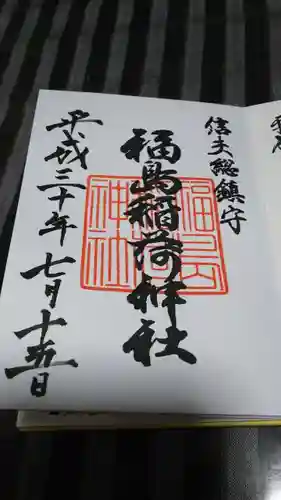 奉拝
信夫総鎮守
福島稲荷神社
福島
稲荷
神社
平成三十年七月十五日